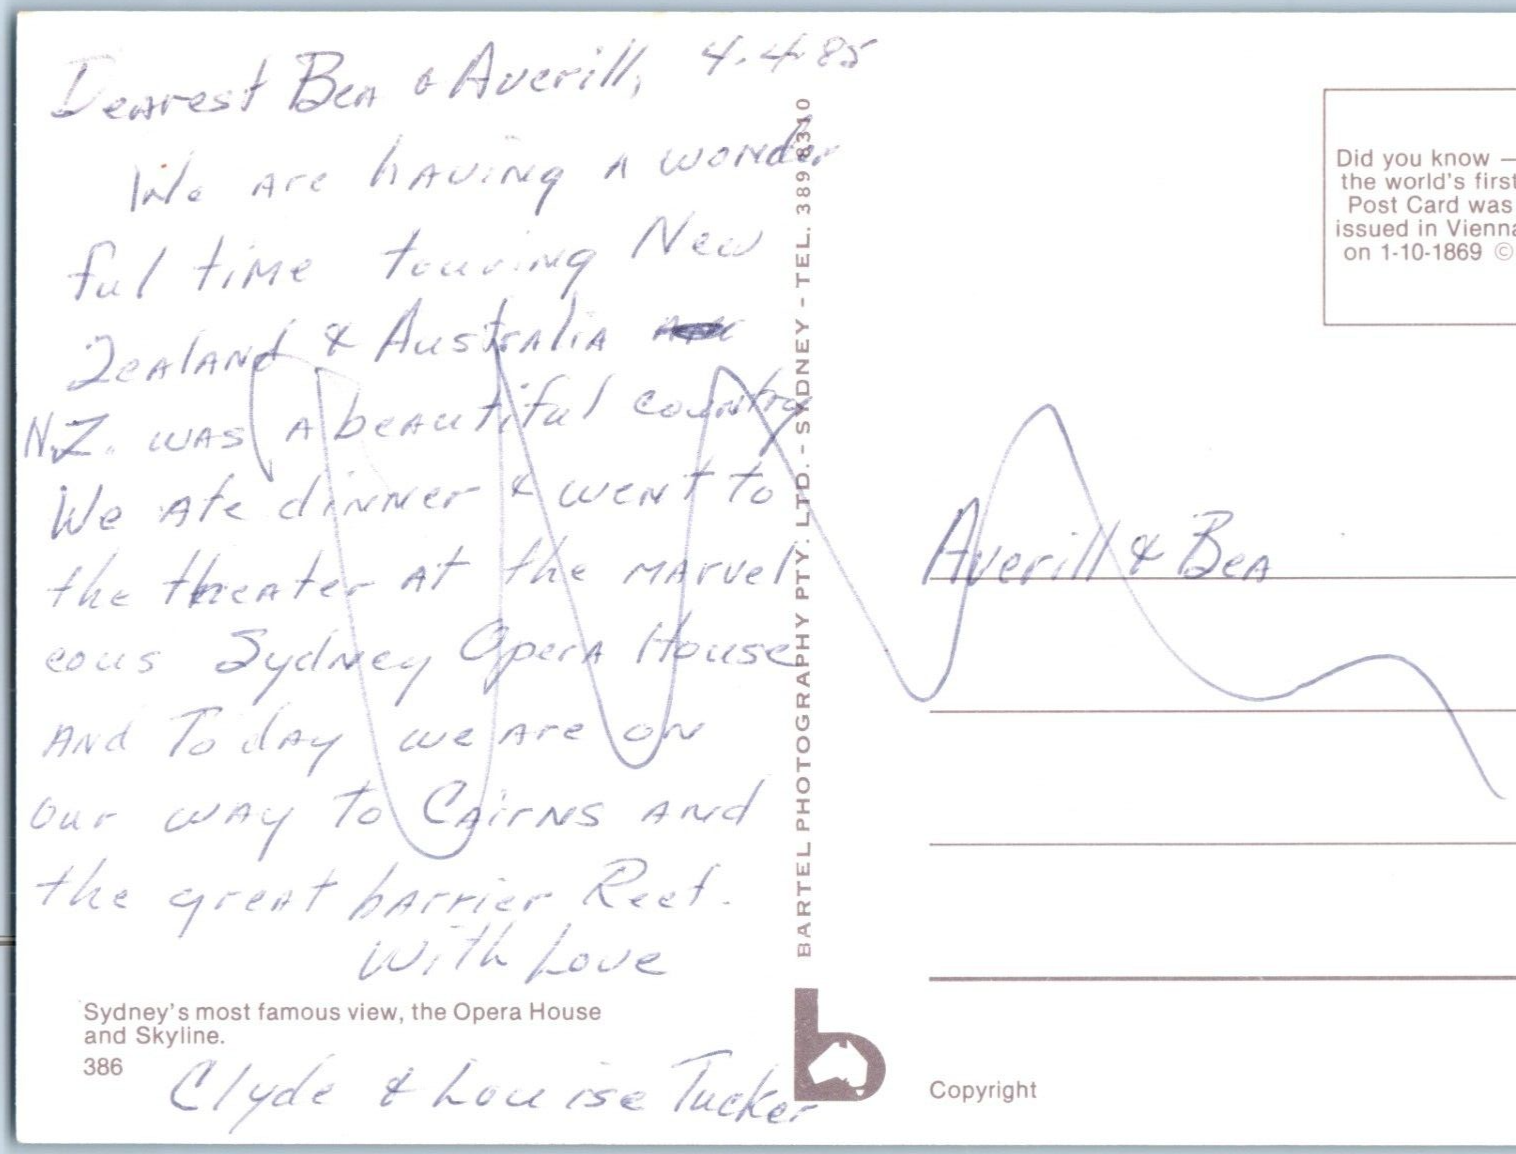 Dearest Bea & Averill, 4.4.85
We are having a wonder
ful time touring New
Zealand & Australia
N.Z. was a beautiful country
We ate dinner & went to
the theater at the marvel
eous Sydney Opera House
and Today we are on
our way to Cairns and
the great barrier Reef.
With Love
Clyde & Louise Tucker
Sydney's most famous view, the Opera House
and Skyline.
386
BARTEL PHOTOGRAPHY PTY. LTD. - SYDNEY - TEL. 389 8310
b
Did you know —
the world's first
Post Card was
issued in Vienna
on 1-10-1869 ©
Averill & Bea
Copyright